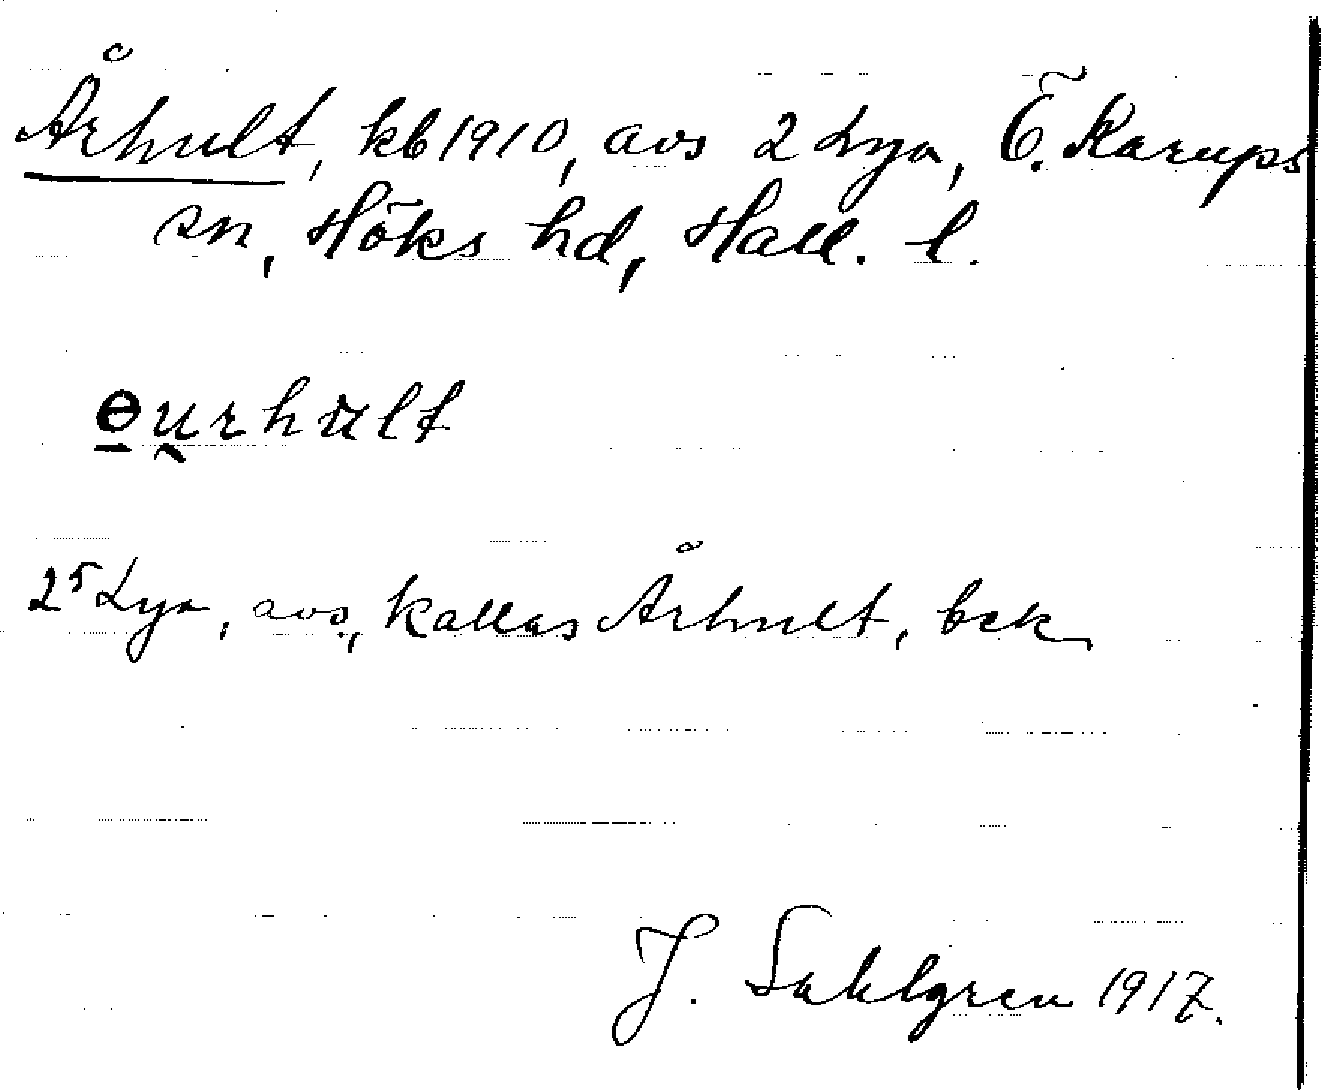 Århult, kb 1910, avs 2 Lya, Ö. Karups
sn, Höks hd, Hall. l.
ɵu̯rhult
2⁵ Lya, avs., kallas Århult, bek
J. Sahlgren 1917.